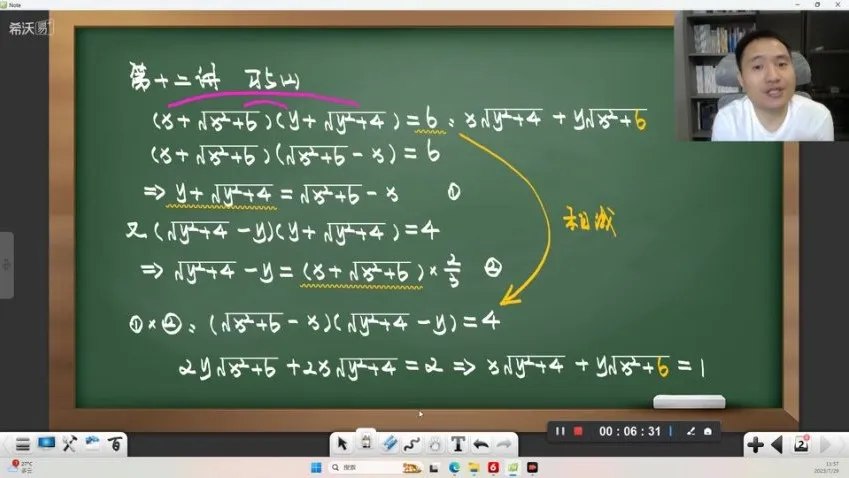 Note
希沃易+
第十二讲 巧(2)
(x+√x²+6)(y+√y²+4)=6, x√y²+4+y√x²+6
(x+√x²+6)(√x²+6-x)=6
⇒ y+√y²+4=√x²+6-x ①
又(√y²+4-y)(y+√y²+4)=4
⇒ √y²+4-y=(x+√x²+6)×2/3 ②
相减
①×②, (√x²+6-x)(√y²+4-y)=4
2y√x²+6+2x√y²+4=2 ⇒ x√y²+4+y√x²+6=1
00:06:31
百
T
2
27°C
多云
搜索
11:57
2023/7/29